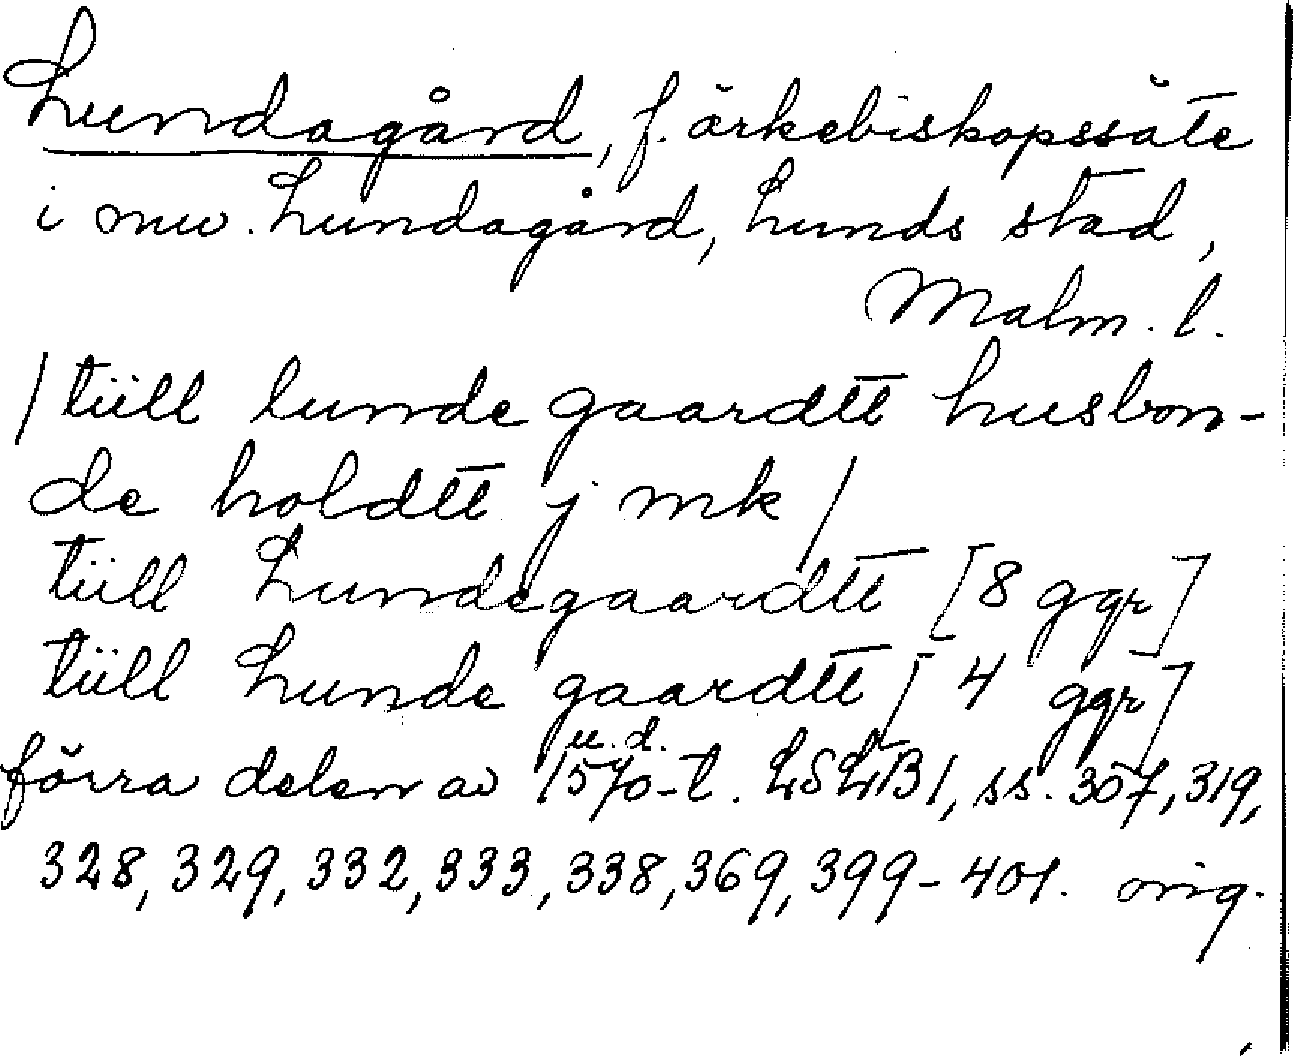 Lundagård, f. ärkebiskopssäte
i nuv. Lundagård, Lunds stad,
Malm. l.
/ tiill lunde gaardtt husbon-
de holdtt j mk /
tiill Lundegaardtt [8 ggr]
tiill Lunde gaardtt [4 ggr]
u. d.
förra delen av 1570-t. LSLB1, ss. 307, 319,
328, 329, 332, 333, 338, 369, 399-401. orig.